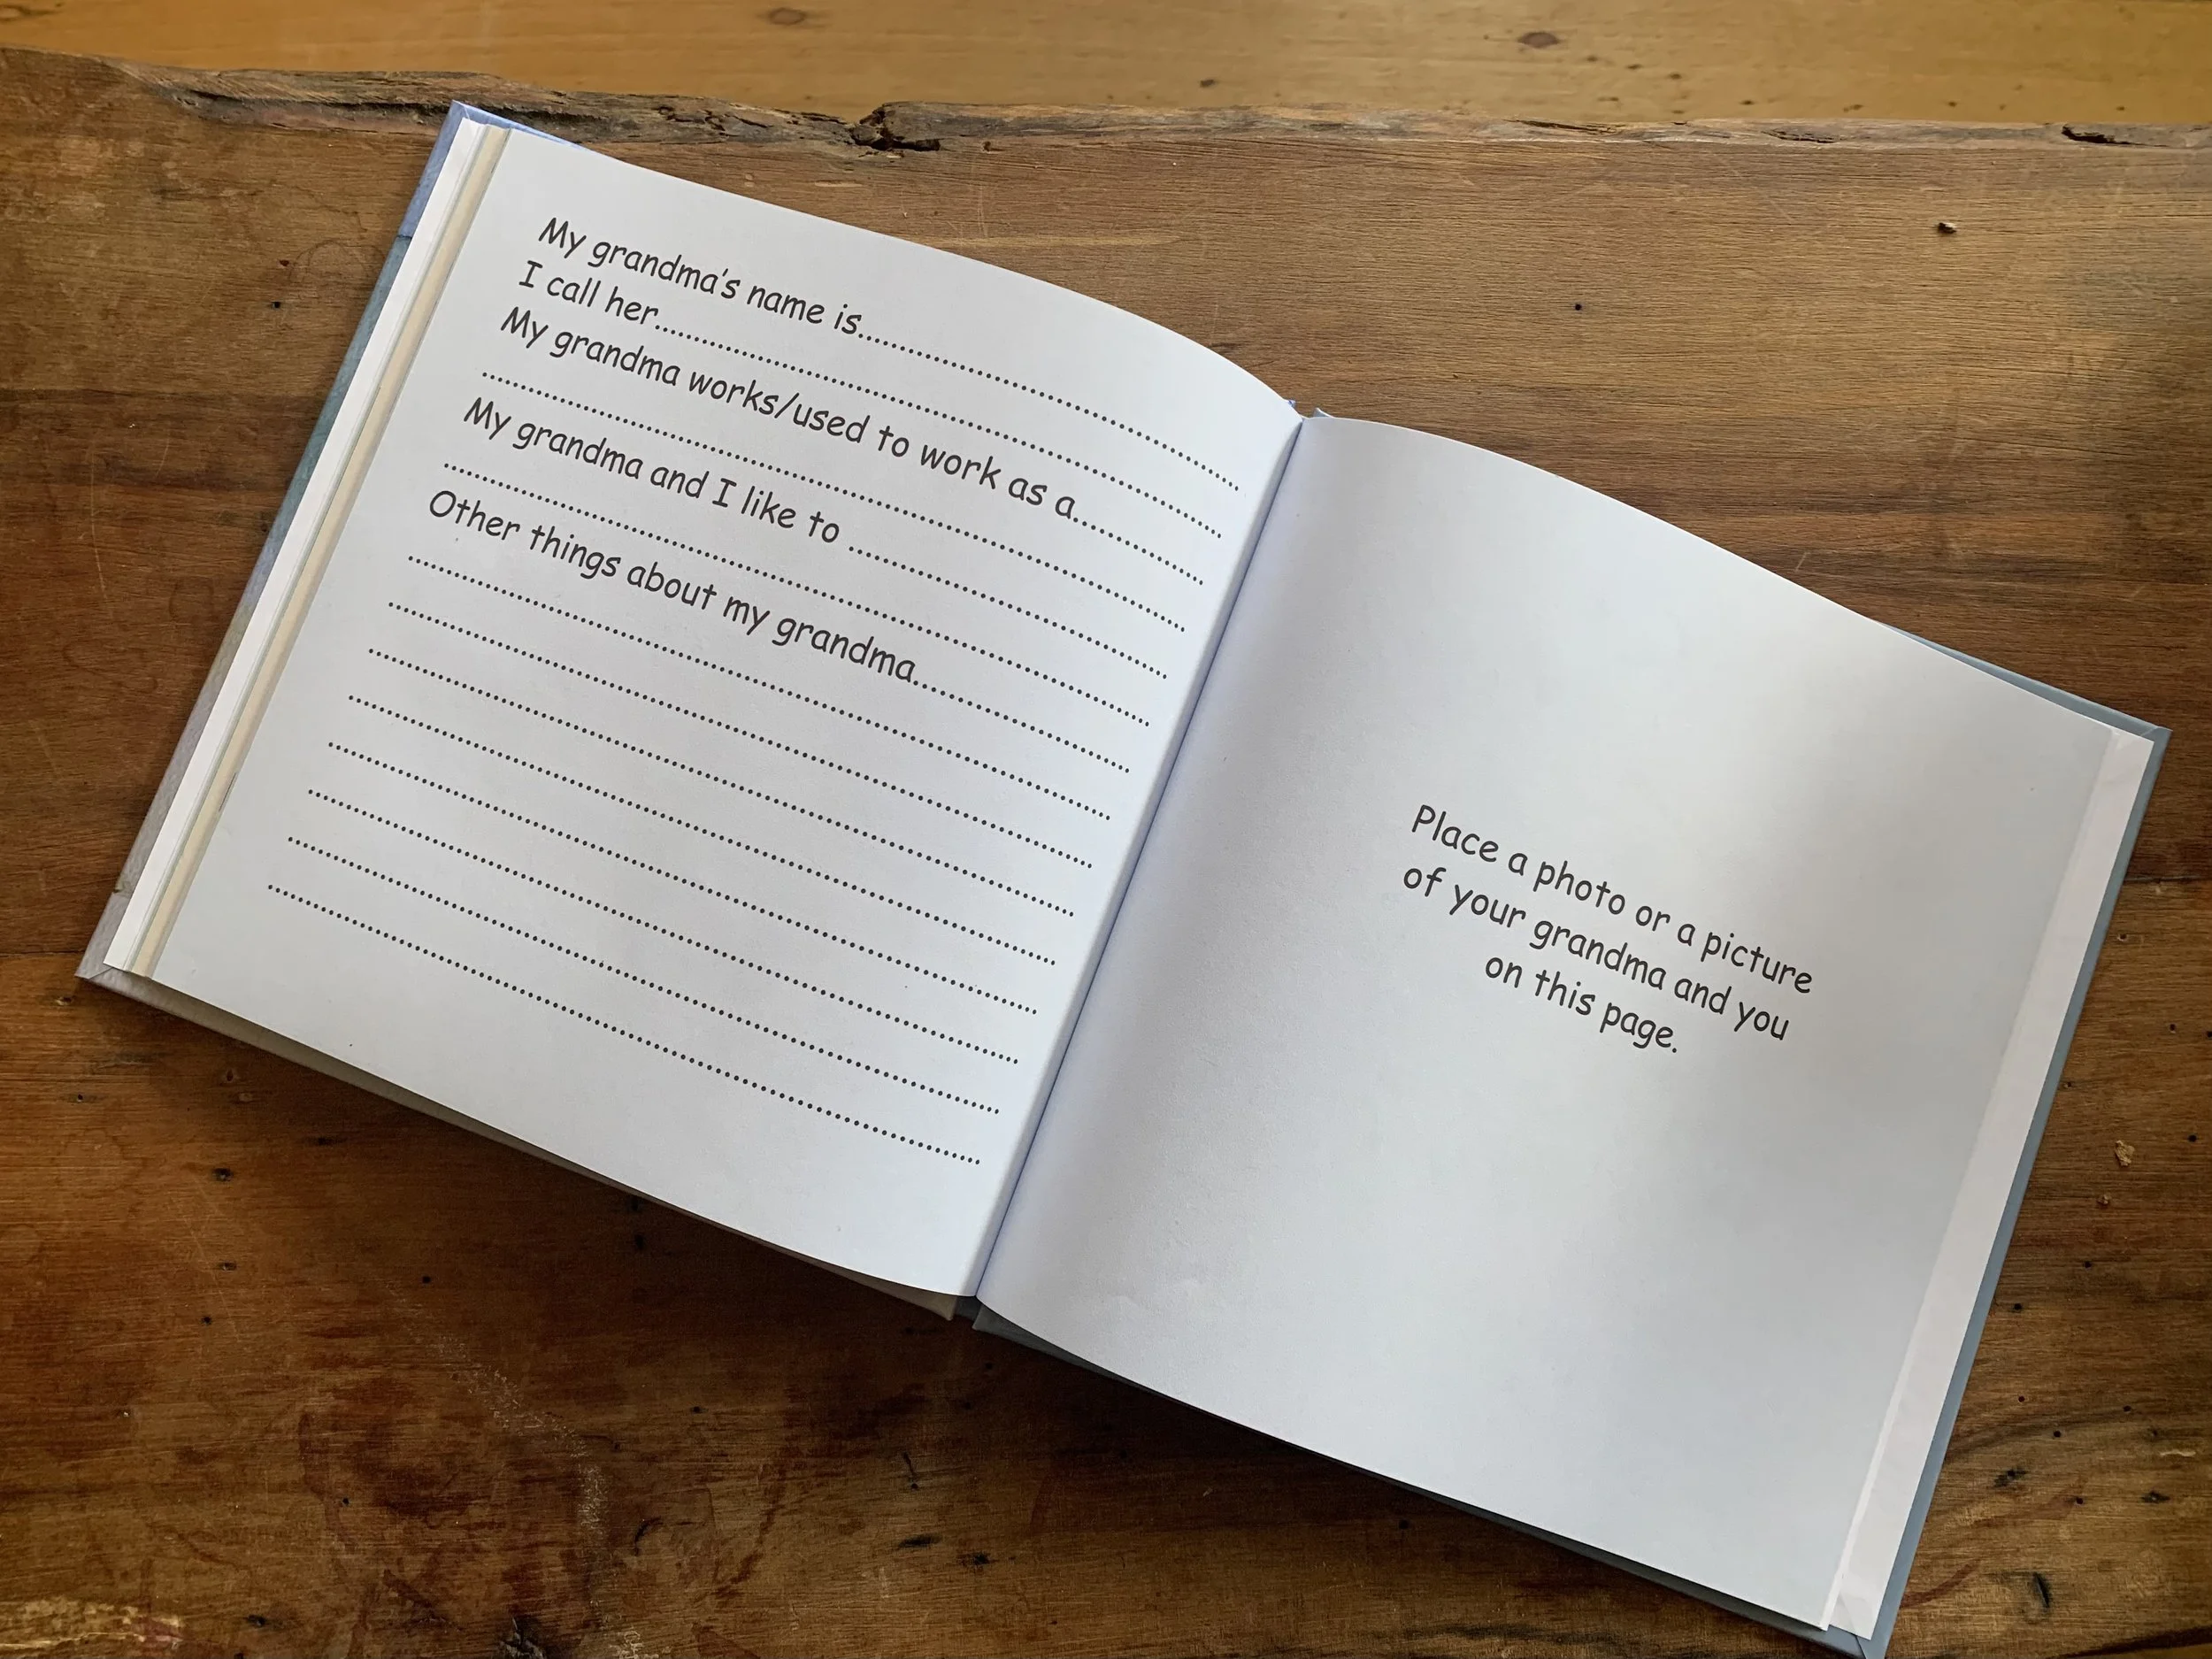 My grandma's name is..............................................
I call her......................................................................
My grandma works/used to work as a................
................................................................................
My grandma and I like to .......................................
................................................................................
Other things about my grandma..........................
................................................................................
................................................................................
................................................................................
................................................................................
................................................................................
................................................................................
................................................................................
................................................................................
Place a photo or a picture
of your grandma and you
on this page.